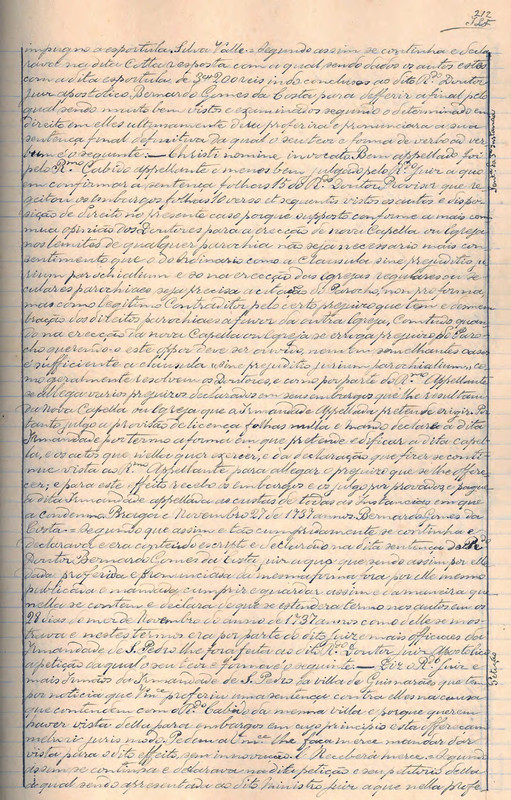 212
impugno a esportula. Silva Valle = Segundo assim se continha e decla
rava na dita Cotta resposta com a qual sendo dados os autos estes
com a dita esportula de 3 200 reis indo conclusos ao dito Rdo Doutor
Juiz apostolico, Bernardo Gomes da Costa para defferir a final pelo
qual sendo muito bem vistos e examinados segundo o determinado em
direito em elles ultimamente deu proferio e pronunciara a sua
sentença final definitiva da qual o seu teor e forma de verbo ad ver
bum é o seguinte: — Christi nomine invocato. Bem appellado foi
pelo Rmo Cabido appellante e menos bem julgado pelo Rdo Juiz a quo
em confirmar a sentença folhas 15 do Rdo Doutor Provisor que re
geitou os embargos folhas 10 verso et sequentes vistos os autos e dispo
sição de direito no presente caso porque supposto conforme a mais com
mua opinião dos Doutores para a erecção de nova Capella ou Igreja
nos limites de qualquer parochia não seja necessario mais con
sentimento que o do Ordinario com a clausula sine prejuditio ju
rium parochialium e so na erecção das Igrejas regulares ou se
culares parochiaes seja precisa a citação do Parocho, non pro forma,
mas como legitimo Contraditor pelo certo prejuizo que tem e demi
nuição dos direitos parochiaes a favor da outra Igreja, Comtudo quan
do na erecção da nova Capella ou Igreja se erroga prejuizo ao Paro
cho querendo-o este oppor deve ser ouvido, nem em semelhantes casos
é sufficiente a clausula sine prejuditio jurium parochialium, co
mo geralmente resolvem os Doutores, e como por parte do Rmo Appellante
se allega varios prejuizos declarados em seus embargos que lhe resultam
da nova Capella ou Igreja que a Irmandade Appellada pretende erigir. Por
tanto, julgo a provisão de licença folhas nulla e mando declare a dita
Irmandade por termo a forma em que pretende edificar a dita capel
la, e os actos que nella quer exercer, e da declaração que fizer se conti
nue vista ao Rmo Appellante para allegar o prejuizo que se lhe offere
cer; e para este effeito recebo os embargos e os julgo por provados e pague
a dita Irmandade appellada as custas de todas as instancias em que
a condemno. Braga e Novembro 27 de 1737 annos. Bernardo Gomes da
Costa = Segundo que assim e tão cumpridamente se continha e
declarava e era contheudo escripto e declarado na dita sentença do Rdo
Doutor Bernardo Gomes da Costa juiz a quo que sendo assim por elle
dada proferida e pronunciada da mesma forma fora por elle mesmo
publicada e mandada cumprir e guardar assim e da maneira que
nella se contem e declara de que se estendera termo nos autos em os
28 dias do mez de Novembro do anno de 1737 annos como delle se mos
trava e nestes termos era por parte do dito Juiz e mais officiaes da
Irmandade de S. Pedro lhe fora feita ao dito Rdo Doutor Juiz Apostolico
a petição da qual o seu teor e forma é o seguinte: — Diz o Rdo Juiz e
mais Irmãos da Irmandade de S. Pedro da villa de Guimarães que tem
por noticia que Vmce proferiu uma sentença contra elles na causa
que contendem com o Rdo Cabido da mesma villa e porque querem
haver vista della para embargos em cujo principio esta offereçam
meliori juris modo. Pedem a Vmce lhe faça merce mandar dar
vista para o dito effeito, sem innovação. E Receberá merce. = Segundo
assim se continha e declarava na dita petição e seu petitorio della
a qual sendo apresentada ao dito Ministro juiz a quo nella profe
Petição